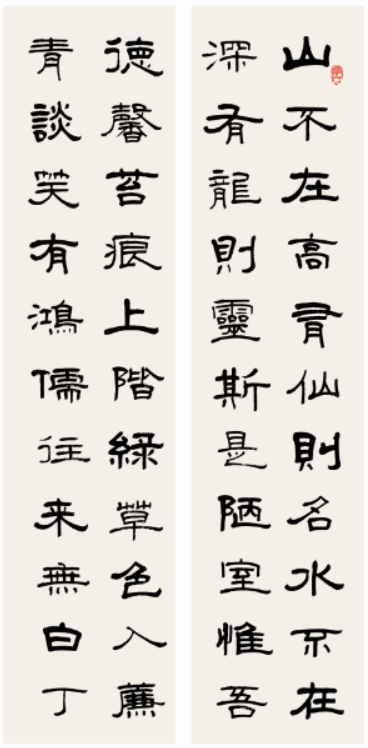 山不在高有仙則名水不在
深有龍則靈斯是陋室惟吾
德馨苔痕上階綠草色入薕
青談笑有鴻儒往来無白丁